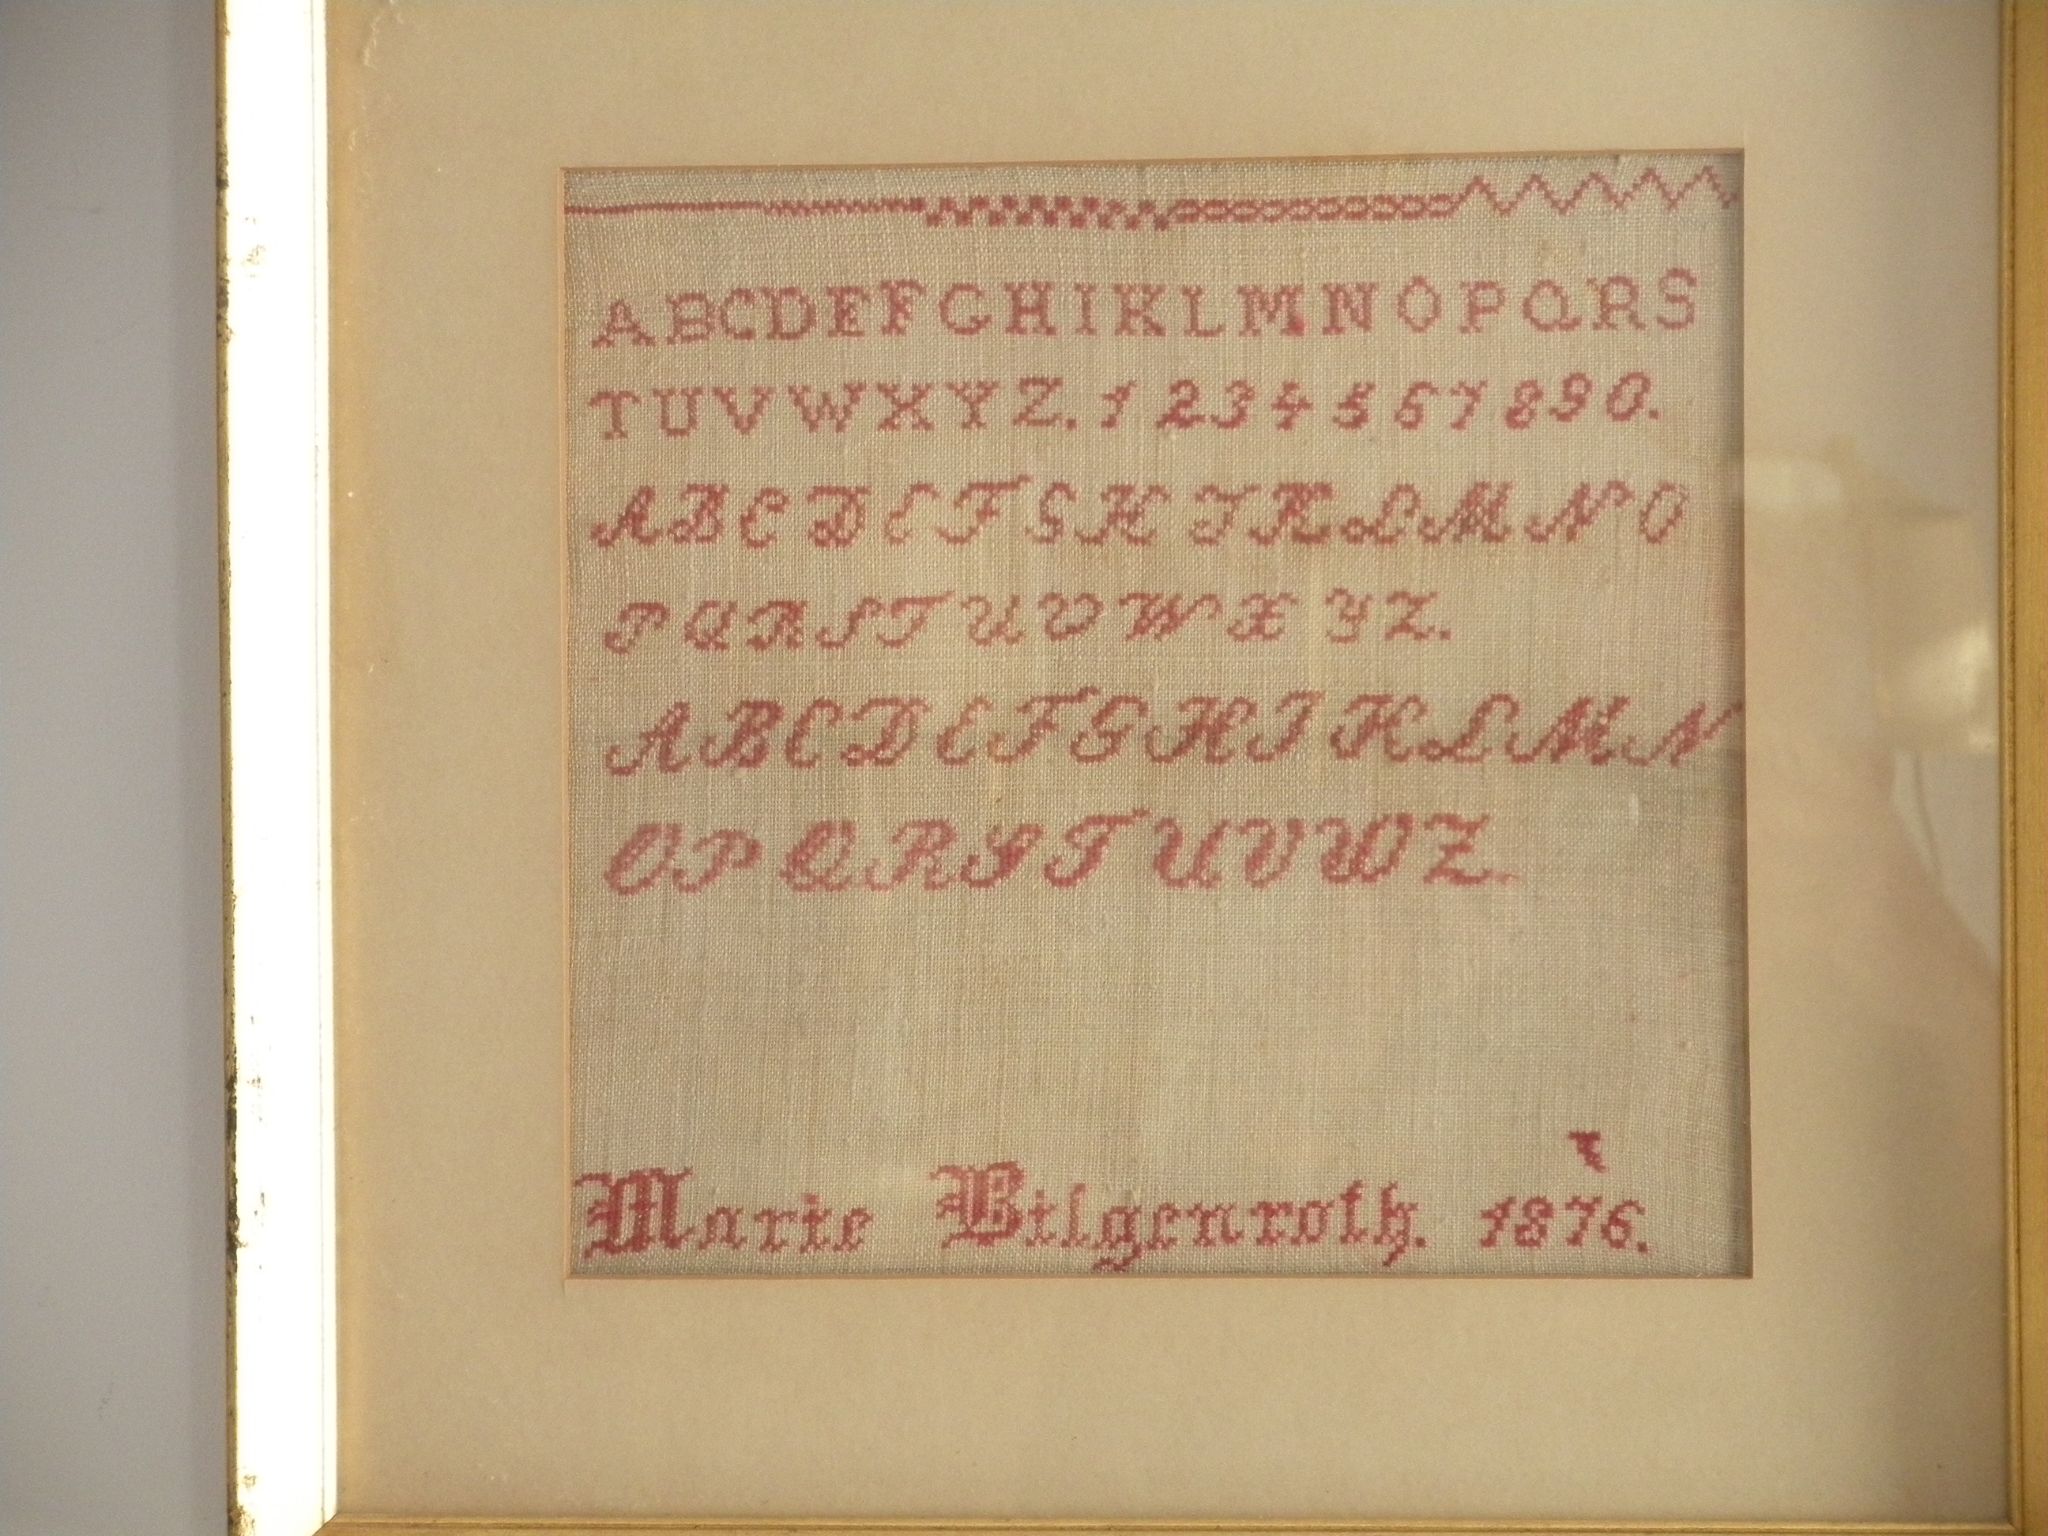 ABCDEFGHIKLMNOPQRS
TUVWXYZ. 1234567890.
ABCDEFGHIKLMNO
PQRSTUVWXYZ.
ABCDEFGHIKLMN
OPQRSTUVWZ.
Marie Bilgenroth. 1876.